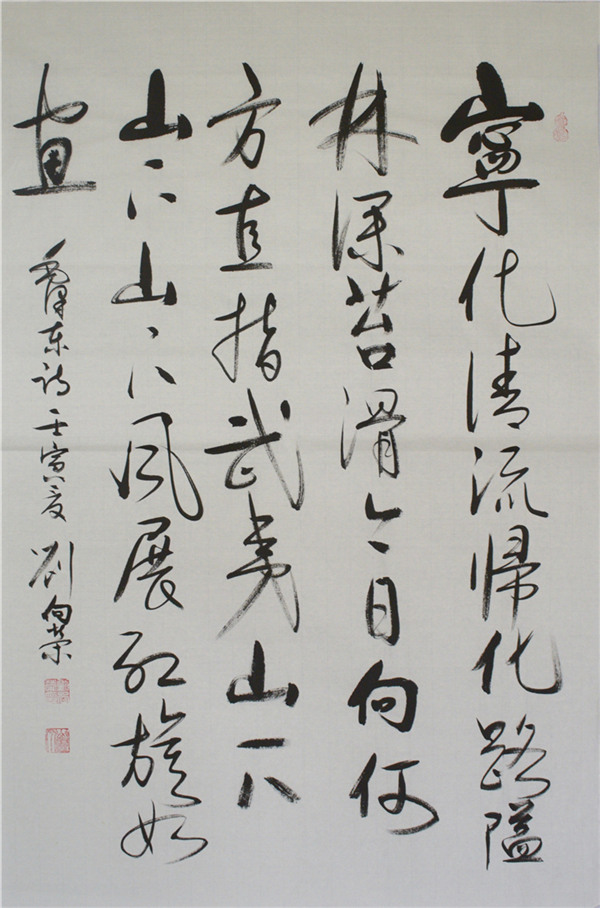 寧化清流帰化路隘
林深苔滑今日向何
方直指武夷山下
山下山下风展红旗如
畫
毛泽东诗壬寅夏刘向荣